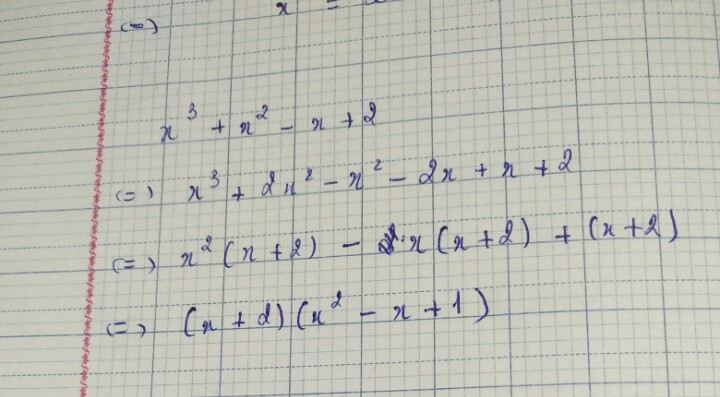 (=) x =
x³ + x² - x + 2
(=) x³ + 2x² - x² - 2x + x + 2
(=) x²(x+2) - x(x+2) + (x+2)
(=) (x+2)(x² - x + 1)